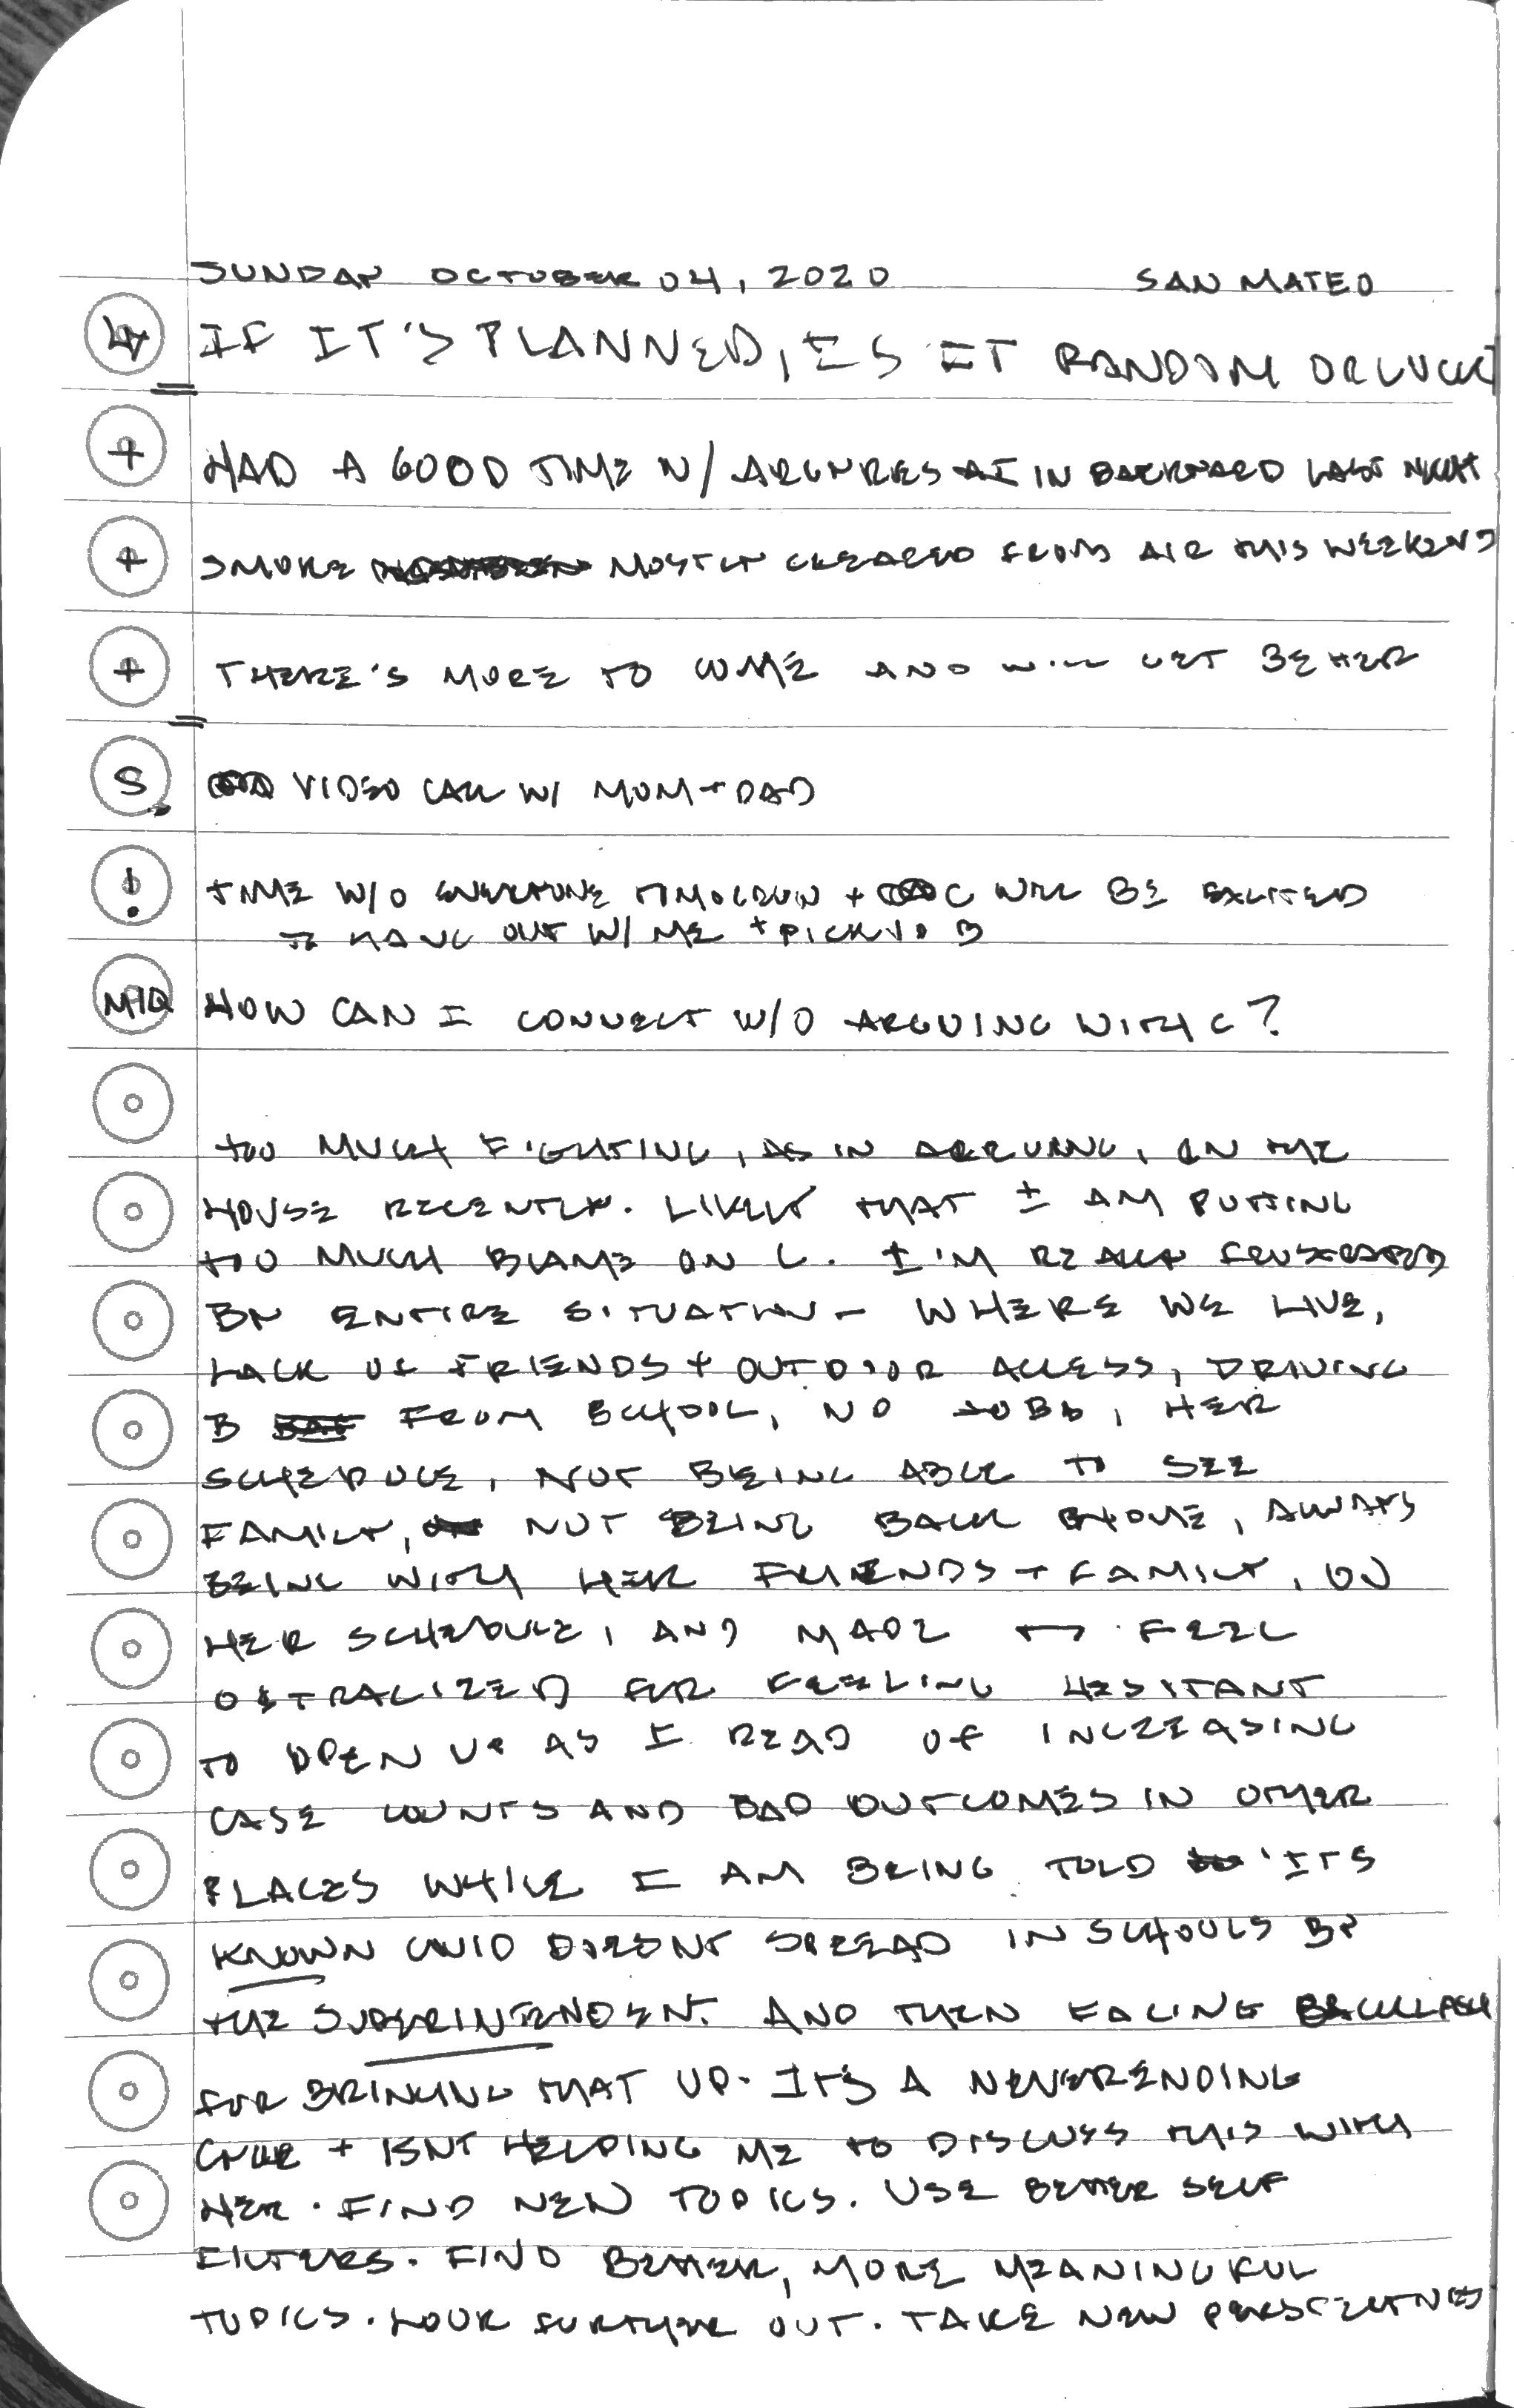 SUNDAY OCTOBER 04, 2020 SAN MATEO
IF IT'S PLANNED, IS IT RANDOM OR LUCK?
+ HAD A GOOD TIME W/ IN BACKYARD LAST NIGHT
+ SMOKE MOSTLY CLEARED FROM AIR THIS WEEKEND
+ THERE'S MORE TO COME AND WILL GET BETTER
S VIDEO CALL W/ MOM + DAD
! TIME W/O EVERYONE + C WILL BE EXCITED
TO HANG OUT W/ ME + PICK UP B
MIQ HOW CAN I CONNECT W/O ARGUING WITH C?
TOO MUCH FIGHTING, AS IN ARGUING, IN THE
HOUSE RECENTLY. LIKELY THAT I AM PUTTING
TOO MUCH BLAME ON C. I'M REALLY FRUSTRATED
BY ENTIRE SITUATION - WHERE WE LIVE,
LACK OF FRIENDS + OUTDOOR ACCESS, DRIVING
B FROM SCHOOL, NO JOBS, HER
SCHEDULE, NOT BEING ABLE TO SEE
FAMILY, NOT BEING BACK HOME, ALWAYS
BEING WITH HER FRIENDS + FAMILY, ON
HER SCHEDULE, AND MADE TO FEEL
OSTRALIZED FOR FEELING HESITANT
TO OPEN UP AS I READ OF INCREASING
CASE COUNTS AND BAD OUTCOMES IN OTHER
PLACES WHILE I AM BEING TOLD 'ITS
KNOWN COVID DOESNT SPREAD IN SCHOOLS BY
THE SUPERINTENDENT. AND THEN FACING BACKLASH
FOR BRINGING THAT UP. ITS A NEVERENDING
CYCLE + ISNT HELPING ME TO DISCUSS THIS WITH
HER. FIND NEW TOPICS. USE BETTER SELF
FILTERS. FIND BETTER, MORE MEANINGFUL
TOPICS. LOOK FURTHER OUT. TAKE NEW PERSPECTIVES